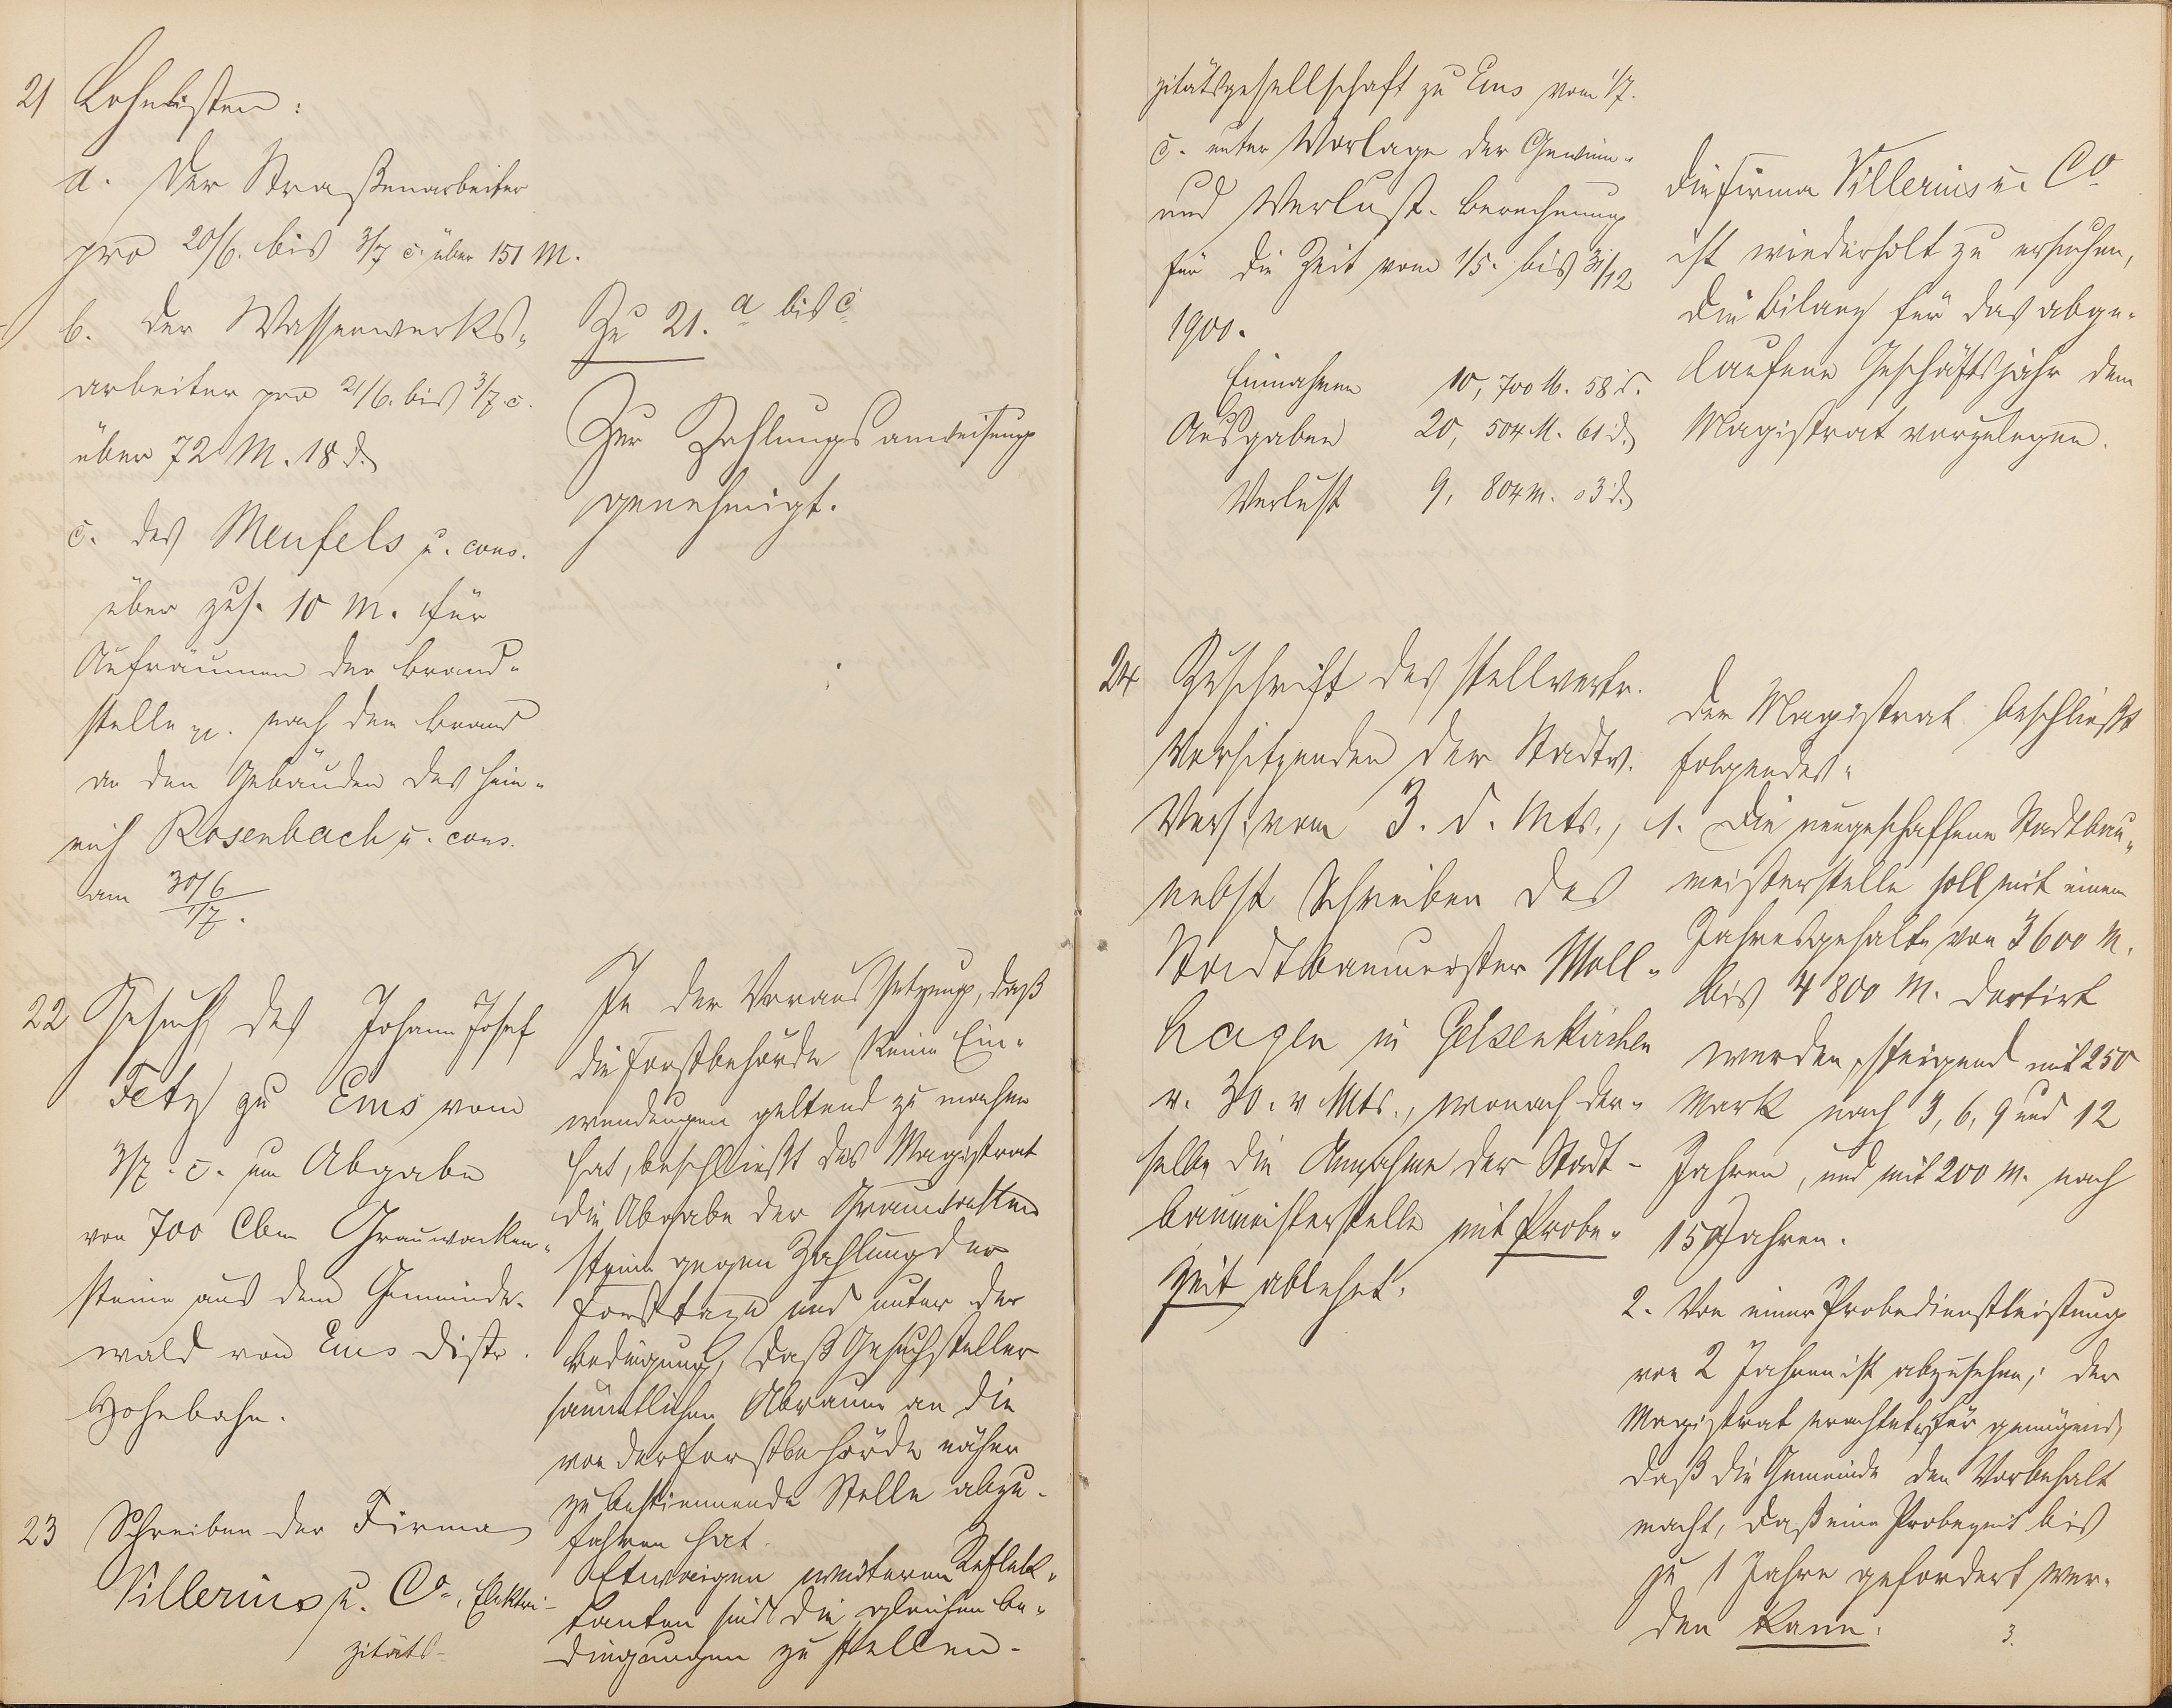 21 Lohnlisten:
a. der Straßenarbeiter
pro 20/6. bis 3/7 c. über 151 M.
b. der Wasserwerks-
arbeiter pro 21/6. bis 3/7. c.
über 72 M. 18 d.
c. des Menfels u. cons.
über zus. 10 M. für
Aufräumen der Brand-
stelle pp. nach dem Brand
an den Gebäuden des Hein-
rich Rosenbach u. cons.
am 30/6
1/7.
Zu 21. a bis c
Zur Zahlungsanweisung
genehmigt.
22 Gesuch des Johann Josef
Fetz zu Ems vom
3/7. c. um Abgabe
von 700 Cbm Grauwacken-
steine aus dem Gemeinde-
wald von Ems Distr.
Hohebahn.
In der Voraussetzung, daß
die Forstbehörde keine Ein-
wendungen geltend zu machen
hat, beschließt das Magistrat
die Abgabe der Grauwacken
steine gegen Zahlung der
Forsttaxe und unter der
Bedingung, daß Gesuchsteller
sämmtlichen Abraum an die
von der Forstbehörde näher
zu bestimmende Stelle abzu-
fahren hat.
Etwaigen weiteren Reflek-
tanten sind die gleichen Be-
dingungen zu stellen.
23 Schreiben der Firma
Villerius u. Co., Elektri-
zitäts-
zitätsgesellschaft zu Ems vom 1/7.
c. unter Vorlage der Gewinn-
und Verlust-Berechnung
für die Zeit vom 1/5. bis 31/12
1900.
Einnahmen 10,700 M. 58 d.
Ausgaben 20,504 M. 61 d.
Verlust 9,804 M. 03 d.
Die Firma Villerius u. Co
ist wiederholt zu ersuchen,
die Bilanz für das abge-
laufene Geschäftsjahr dem
Magistrat vorzulegen.
24 Zuschrift des stellvertr.
Vorsitzenden der Stadtv.
Vers. vom 3. d. Mts.,
nebst Schreiben des
Stadtbaumeister Moll-
hagen in Gelsenkirchen
v. 30. v. Mts., wonach der-
selbe die Annahme der Stadt-
baumeisterstelle mit Probe-
zeit ablehnt.
Der Magistrat beschließt
folgendes:
1. Die neugeschaffene Stadtbau-
meisterstelle soll mit einem
Jahresgehalte von 3600 M.
bis 4800 M. dortirt
werden, steigend mit 250
Mark nach 3, 6, 9 und 12
Jahren, und mit 200 M. nach
15 Jahren.
2. Von einer Probedienstleistung
von 2 Jahren ist abzusehen; der
Magistrat erachtet es für genügend,
daß die Gemeinde den Vorbehalt
macht, daß eine Probezeit bis
zu 1 Jahre gefordert wer-
den kann.
3.